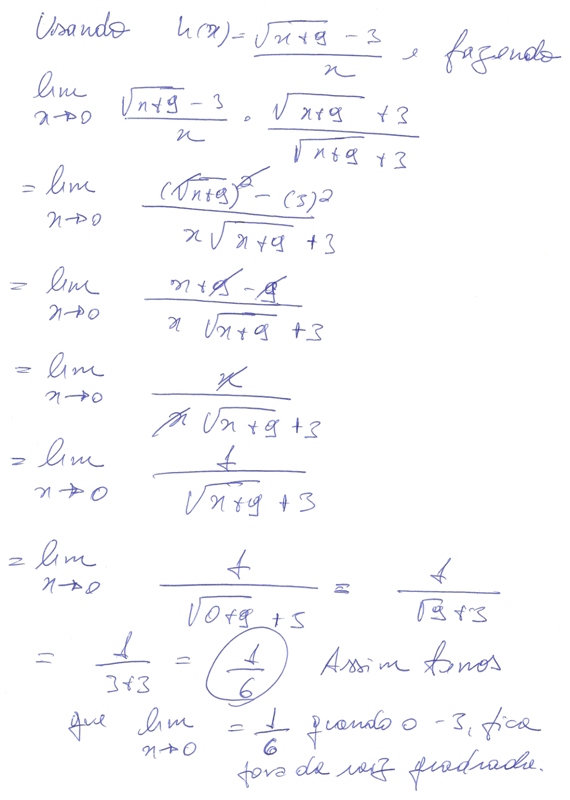 Usando h(x) = √(x+9) - 3 / x e fazendo
lim x→0 √(x+9) - 3 / x · √(x+9) + 3 / √(x+9) + 3
= lim x→0 (√(x+9))² - (3)² / x √(x+9) + 3
= lim x→0 x+9 - 9 / x √(x+9) + 3
= lim x→0 x / x √(x+9) + 3
= lim x→0 1 / √(x+9) + 3
= lim x→0 1 / √(0+9) + 3 = 1 / √9 + 3
= 1 / 3+3 = 1 / 6 Assim temos
que lim x→0 = 1 / 6 quando o -3, fica
fora da raiz quadrada.